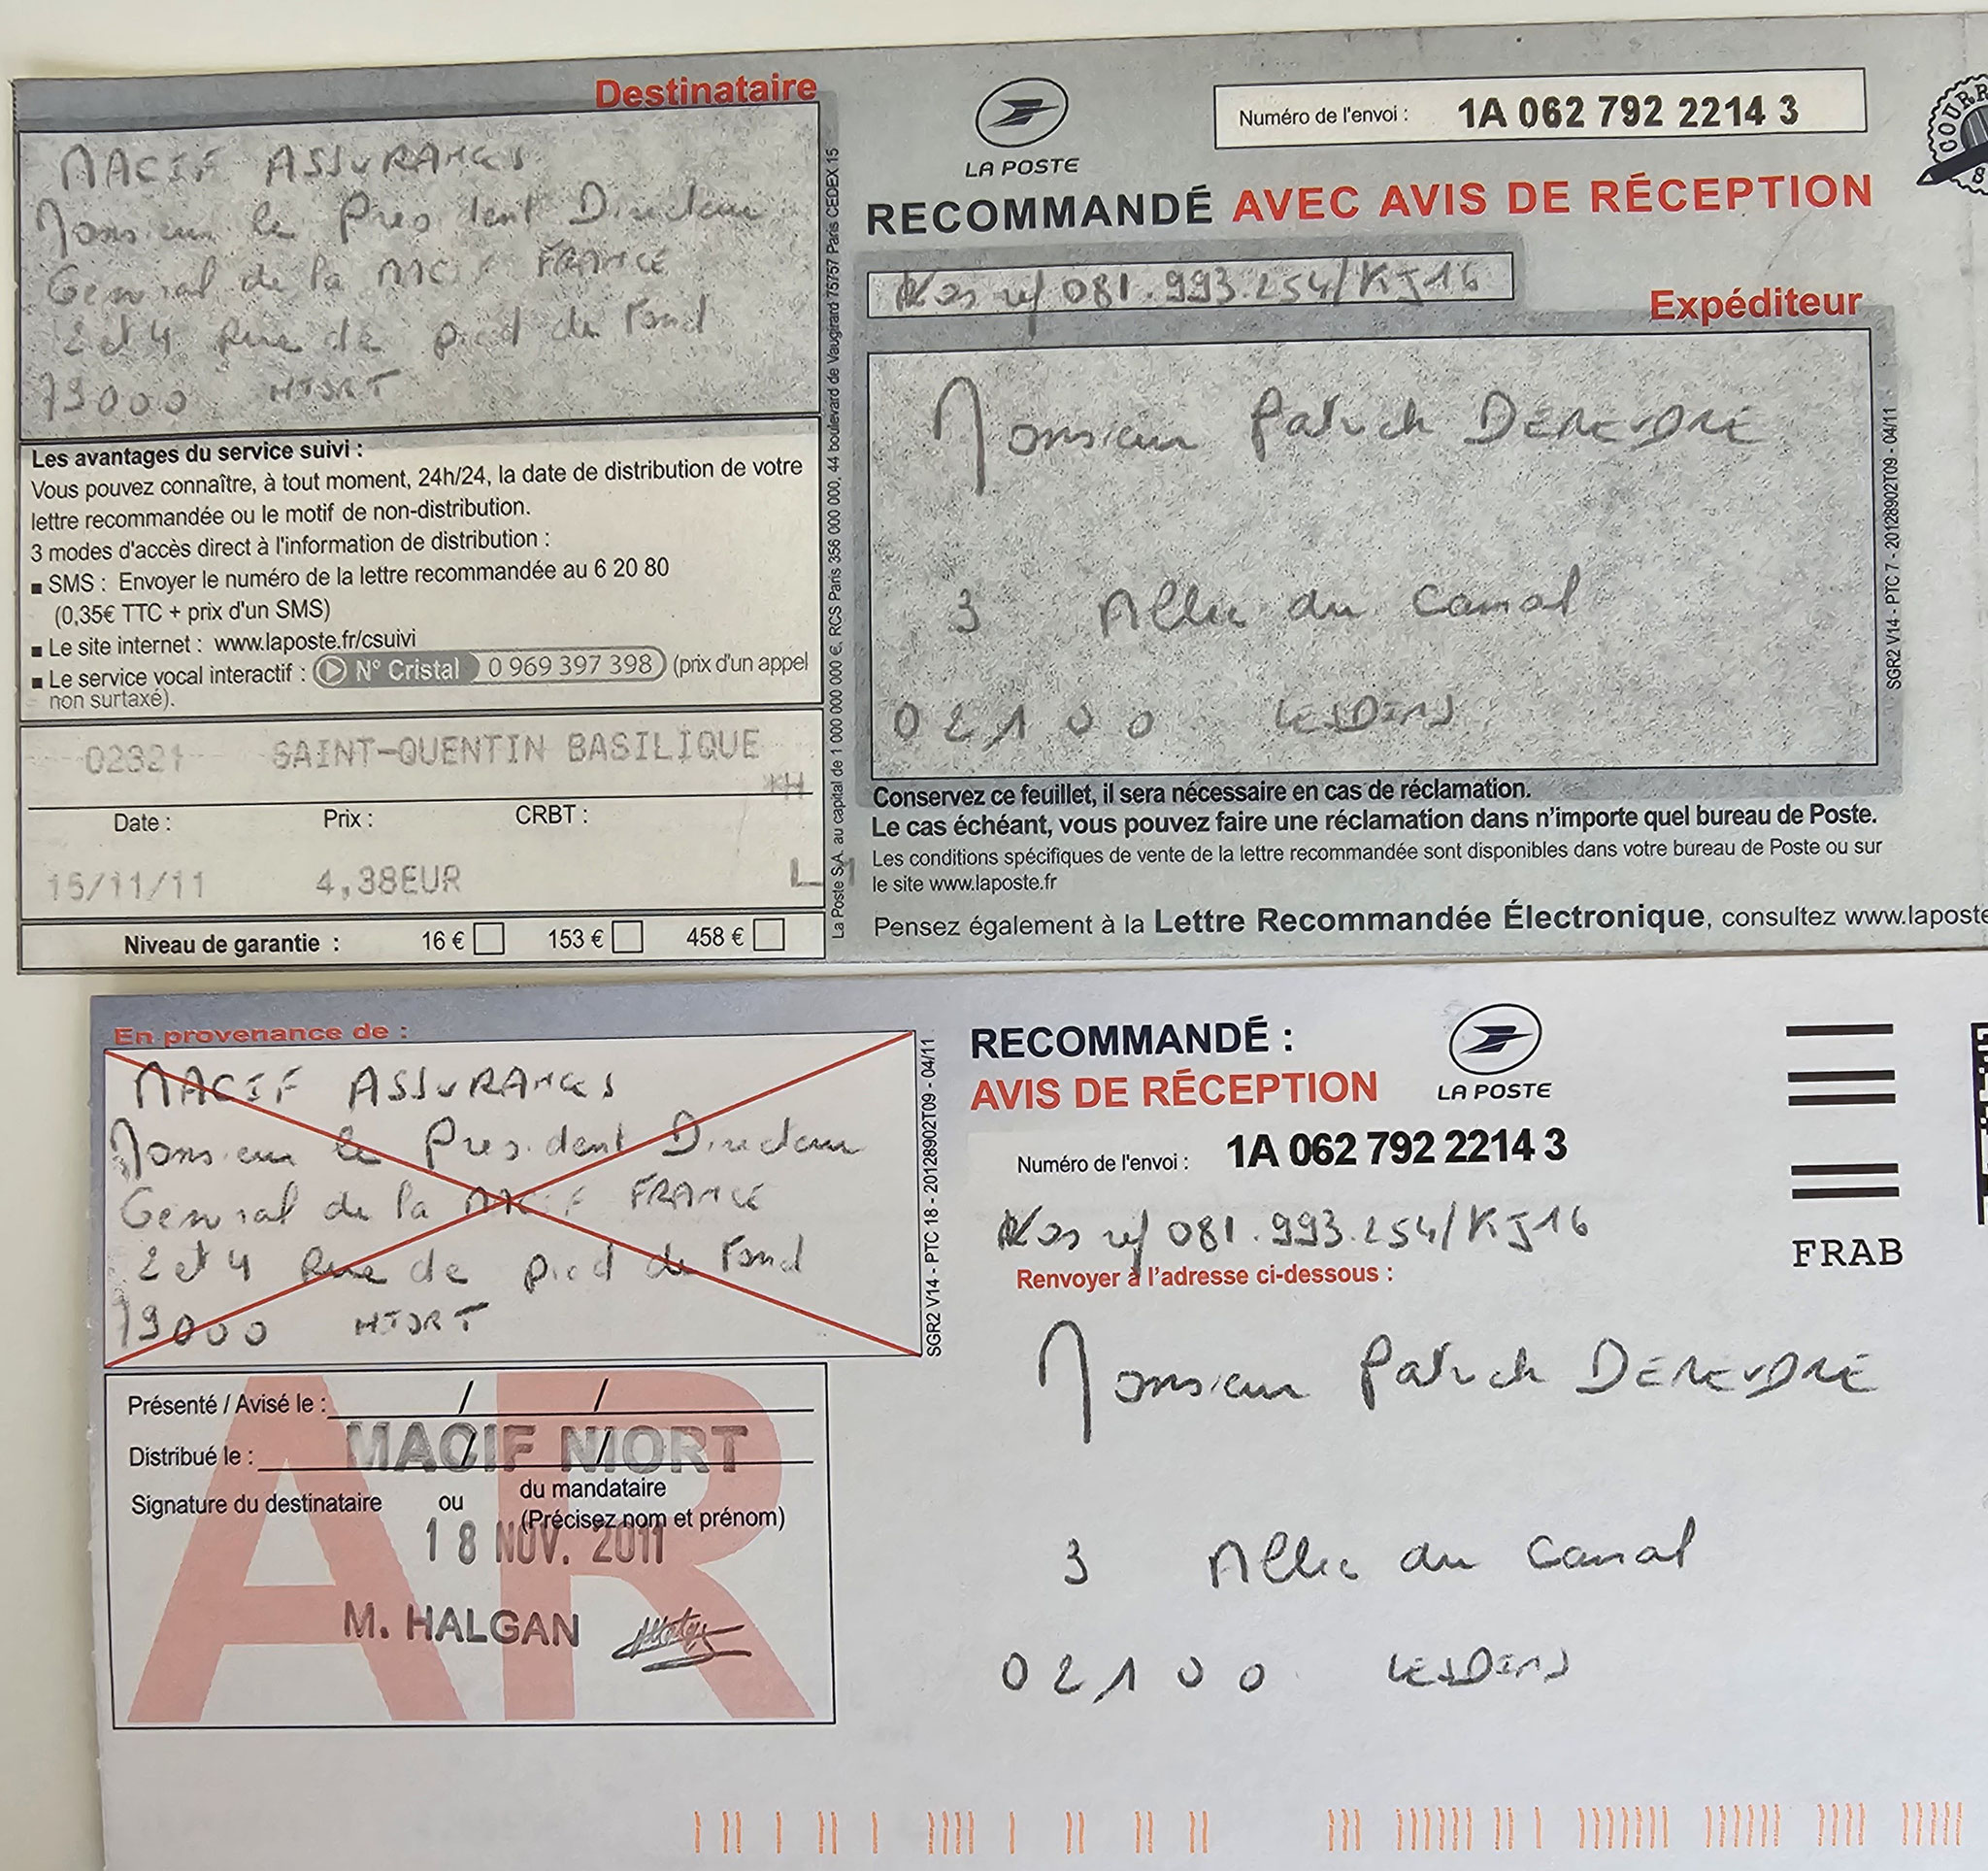 Destinataire
MACIF ASSURANCES
Monsieur le President Directeur
General de la MACIF FRANCE
2 et 4 Rue de pied de Fond
79000 NIORT
Les avantages du service suivi :
Vous pouvez connaître, à tout moment, 24h/24, la date de distribution de votre
lettre recommandée ou le motif de non-distribution.
3 modes d'accès direct à l'information de distribution :
■ SMS : Envoyer le numéro de la lettre recommandée au 6 20 80
(0,35€ TTC + prix d'un SMS)
■ Le site internet : www.laposte.fr/csuivi
■ Le service vocal interactif : N° Cristal 0 969 397 398 (prix d'un appel
non surtaxé).
02321 SAINT-QUENTIN BASILIQUE
Date : Prix : CRBT :
15/11/11 4,38EUR
Niveau de garantie : 16 € 153 € 458 €
La Poste S.A. au capital de 1 000 000 000 €, RCS Paris 356 000 000, 44 boulevard de Vaugirard 75757 Paris CEDEX 15
LA POSTE
Numéro de l'envoi : 1A 062 792 2214 3
RECOMMANDÉ AVEC AVIS DE RÉCEPTION
Vos ref 081.993.254/KJ16
Expéditeur
Monsieur Patrick DENEUDRE
3 Allée du Canal
02100 LESDINS
SGR2 V14 - PTC 7 - 20128902T09 - 04/11
Conservez ce feuillet, il sera nécessaire en cas de réclamation.
Le cas échéant, vous pouvez faire une réclamation dans n'importe quel bureau de Poste.
Les conditions spécifiques de vente de la lettre recommandée sont disponibles dans votre bureau de Poste ou sur
le site www.laposte.fr
Pensez également à la Lettre Recommandée Électronique, consultez www.laposte
En provenance de :
MACIF ASSURANCES
Monsieur le President Directeur
General de la MACIF FRANCE
2 et 4 Rue de pied de Fond
79000 NIORT
SGR2 V14 - PTC 18 - 20128902T09 - 04/11
AR
Présenté / Avisé le : / /
Distribué le : / /
MACIF NIORT
Signature du destinataire ou du mandataire
(Précisez nom et prénom)
18 NOV. 2011
M. HALGAN
RECOMMANDÉ :
AVIS DE RÉCEPTION
LA POSTE
Numéro de l'envoi : 1A 062 792 2214 3
Vos ref 081.993.254/KJ16
Renvoyer à l'adresse ci-dessous :
FRAB
Monsieur Patrick DENEUDRE
3 Allée du Canal
02100 LESDINS